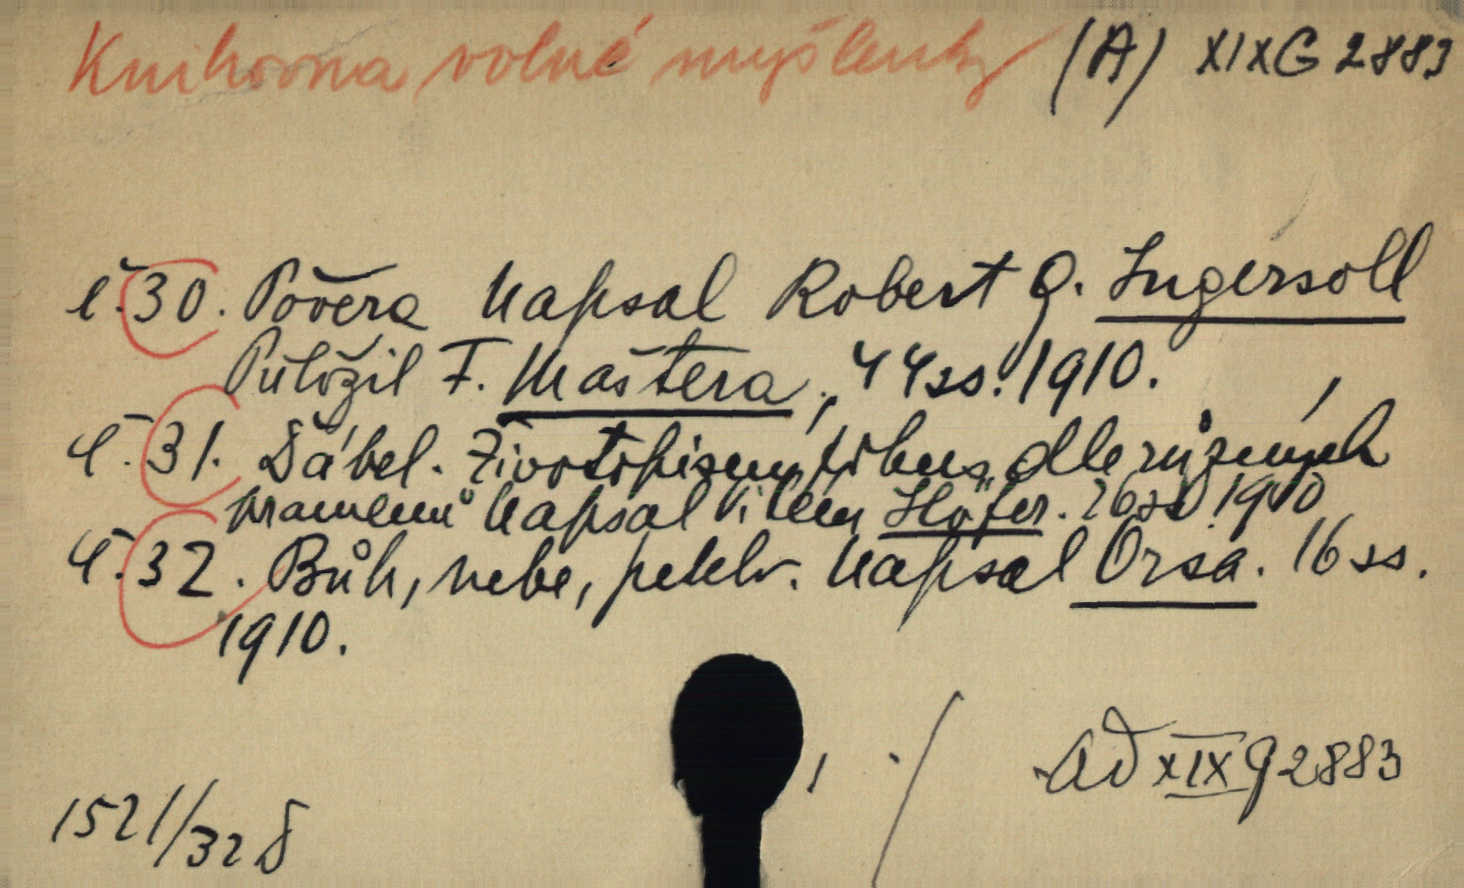 Knihovna volné myšlenky (A) XIX G 2883
č. 30. Pověra Napsal Robert G. Ingersoll
Přeložil F. Maštera, 44 ss. 1910.
č. 31. Ďábel. Životopisný dle různých
pramenů Napsal Vilém Höfer. 26 ss 1910
č. 32. Bůh, nebe, peklo. Napsal Orsa. 16 ss.
1910.
ad XIX G 2883
1521/32 d